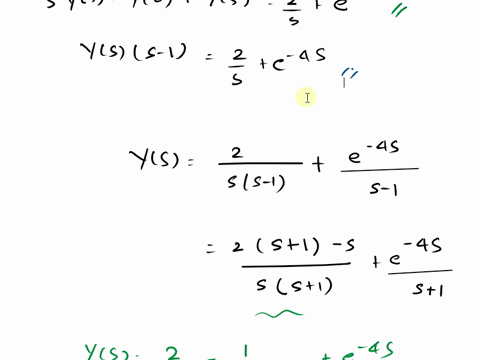 = 2/s + e
Y(s) (s-1) = 2/s + e^-4s
Y(s) = 2/s(s-1) + e^-4s/s-1
= 2(s+1) -s/s(s+1) + e^-4s/s+1
Y(s) 2 1 + e^-4s